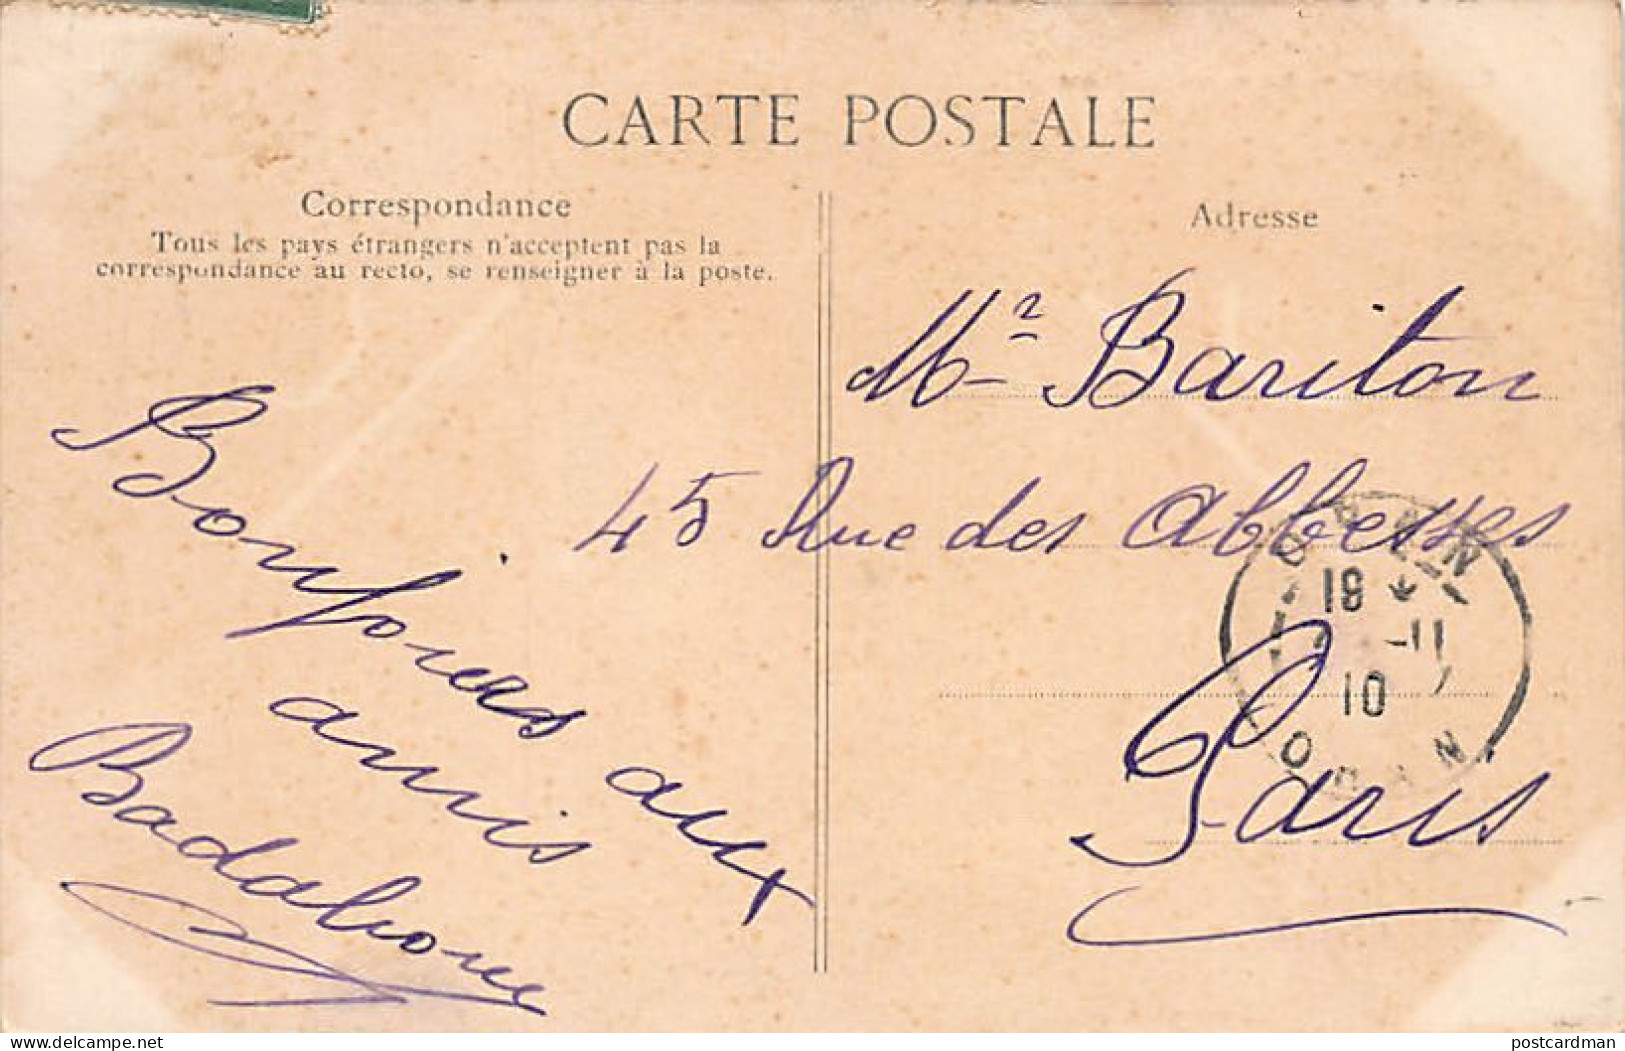 CARTE POSTALE
Correspondance
Tous les pays étrangers n'acceptent pas la
correspondance au recto, se renseigner à la poste.
Adresse
Mr Bariton
45 Rue des Abbesses
Paris
aux
amis
ORAN
18 * -11
10
ORAN
www.delcampe.net
postcardman